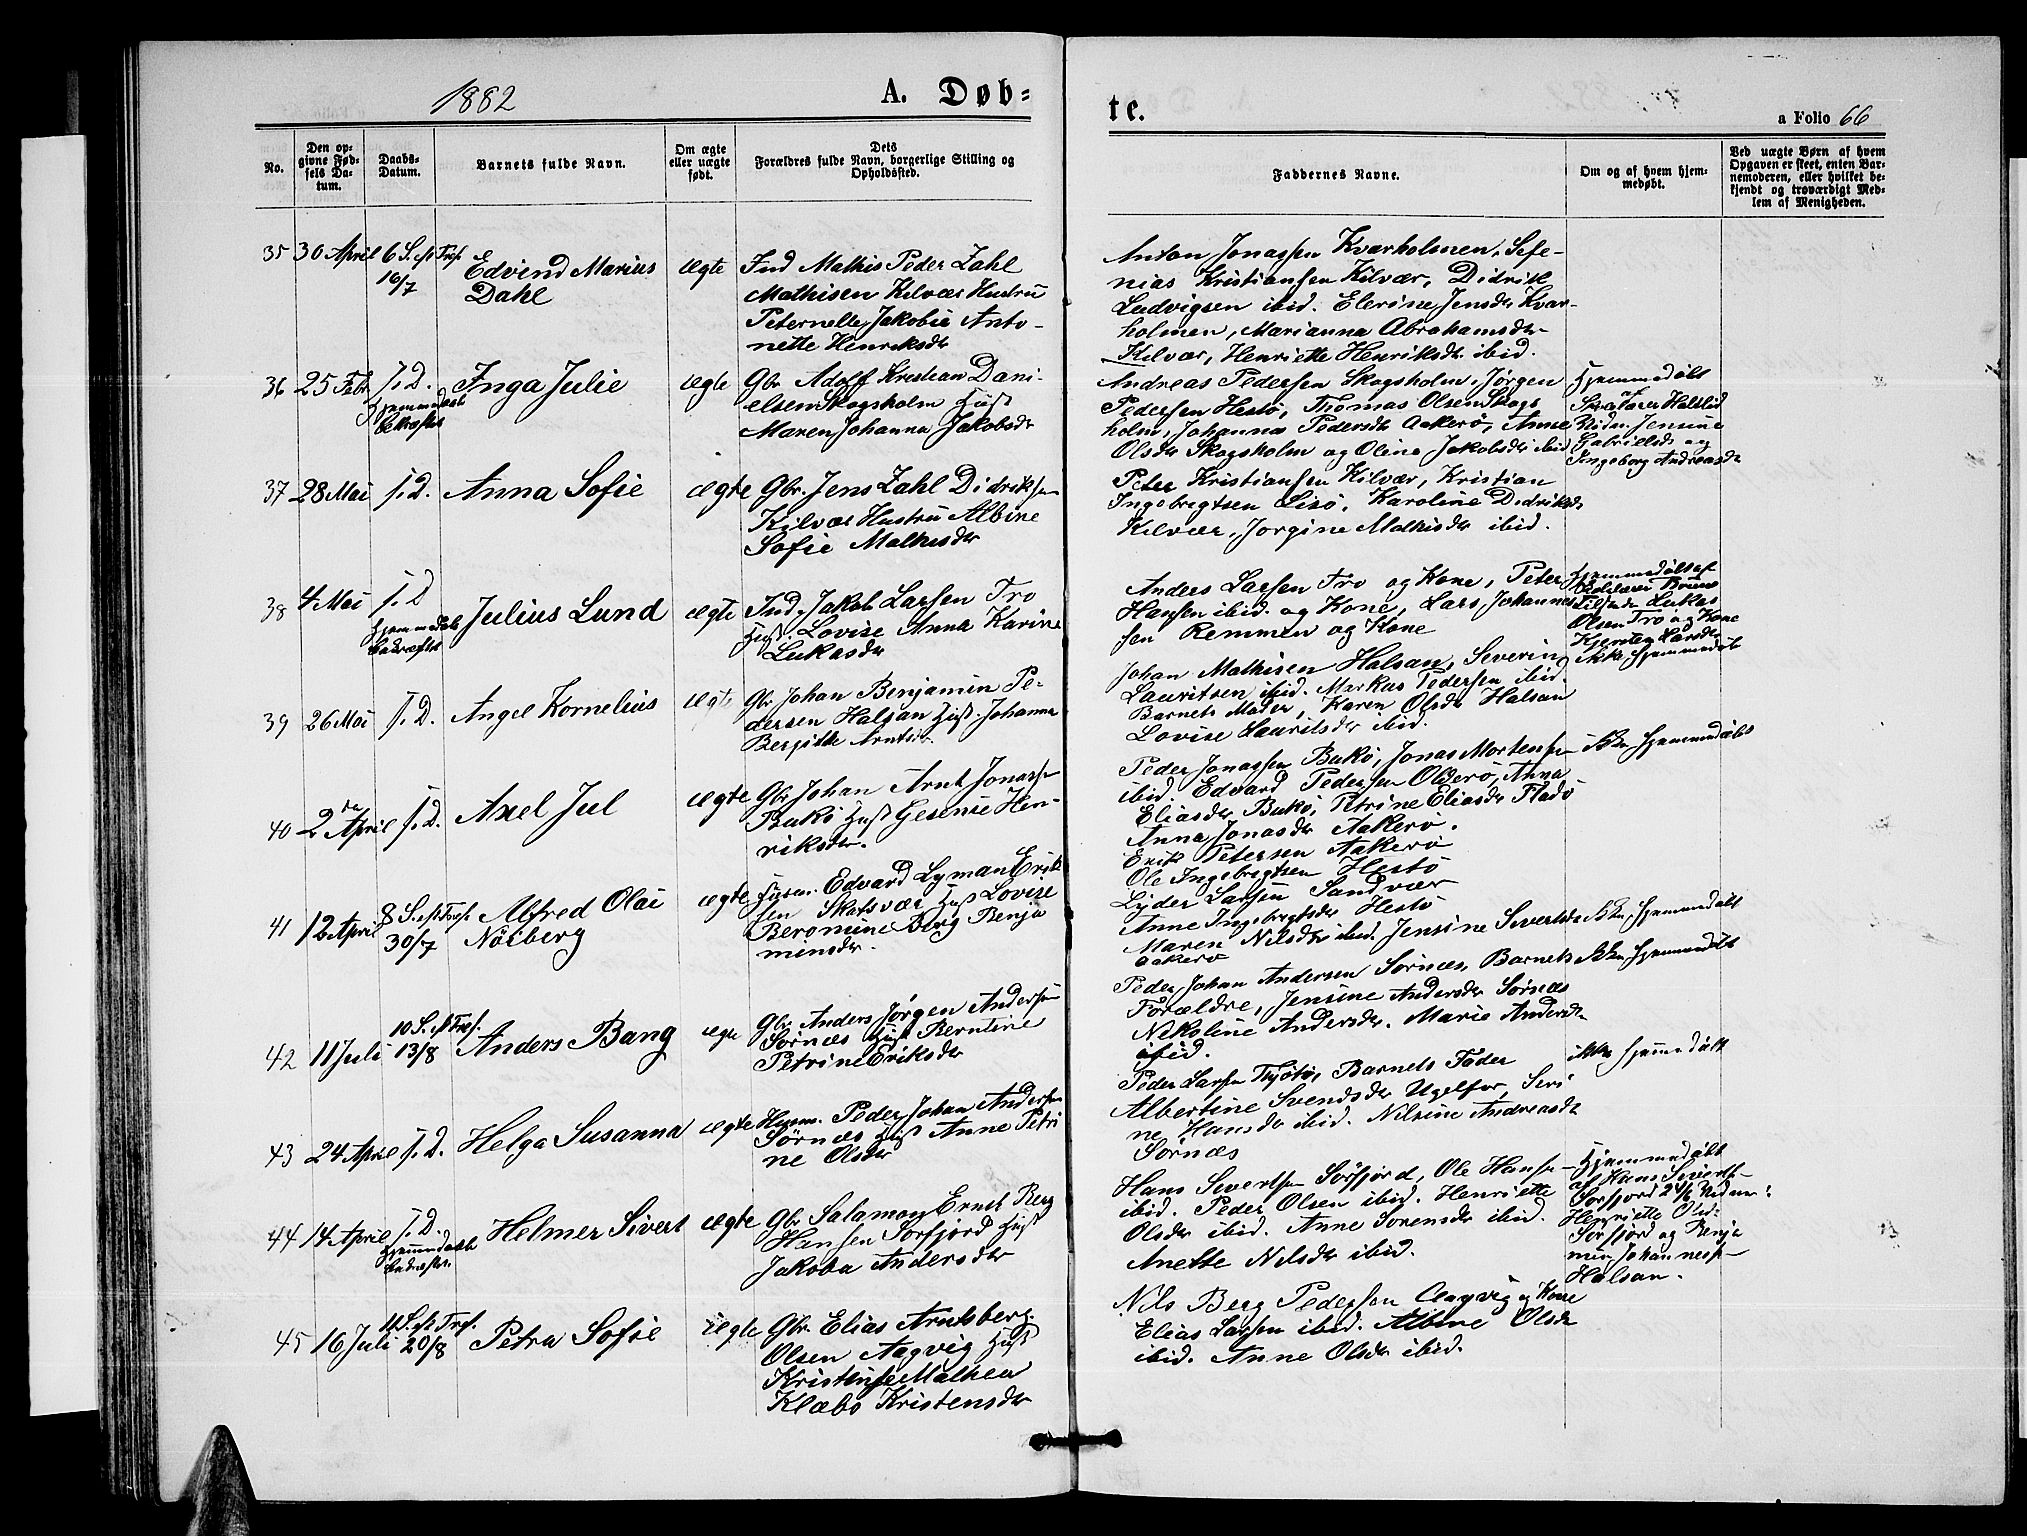 1882
A. Døb=
te.
a Folio 66
No.
Den op=
givne Fød=
sels Da=
tum.
Daabs=
Datum.
Barnets fulde Navn.
Om ægte
eller uægte
født.
Dets
Forældres fulde Navn, borgerlige Stilling og
Opholdssted.
Faddernes Navne.
Om og af hvem hjem=
medøbt.
Ved uægte Børn af hvem
Opgaven er skeet, enten Bar=
nemoderen, eller hvilket be=
kjendt og troværdigt Med=
lem af Menigheden.
35 30 April 6 S. eft Tref. 16/7
Edvind Marius
Dahl
ægte
Ind Mathis Peder Zahl
Mathisen Kilvær Hustru
Peternelle Jakobie Anto-
nette Henriksdr
Anton Jonassen Kvarholmen, Sefe-
nias Kristiansen Kilvær, Didrik
Ludvigsen ibid. Elerine Jensdr Kvar-
holmen, Marianna Abrahamsdr
Kilvær, Henriette Henriksdr ibid.
36 25 Febr J. D.
Hjemmedøbt
bekræftet
Inga Julie
ægte
Gbr. Adolf Kristian Dani-
elsen Skogsholm Hust
Maren Johanna Jakobsdr
Andreas Pedersen Skogsholm, Jørgen
Pedersen Hestø, Thomas Olsen Skogs
holm, Johanna Pedersdr Aakerø, Anne
Olsdr Skogsholm og Oline Jakobsdr ibid
Hjemmedøbt
af
Halslid
Vidn. Jensine
Gabrielsdr og
Ingeborg Andreasdr
37 28 Mai J. D.
Anna Sofie
ægte
Gbr. Jens Zahl Didriksen
Kilvær Hustru Albine
Sofie Mathisdr
Peter Kristiansen Kilvær, Kristian
Ingebrigtsen Lisø, Karoline Didriksdr
Kilvær, Jørgine Mathisdr ibid.
38 4 Mai J. D
Hjemmedøbt
bekræftet
Julius Lund
ægte
Ind. Jakob Larsen Tro
Hust. Lovise Anna Karine
Lukasdr
Anders Larsen Tro og Kone, Peter
Hansen ibid. og Kone, Lars Johannes
sen Remmen og Kone
Hjemmedøbt af
Lukas
Olsen Tro og Kone
Kjersten Larsdr
39 26 Mai J. D.
Angel Kornelius
ægte
Gbr Johan Benjamin Pe-
dersen Halsan Hust. Johanna
Bergitte Arntsdr.
Johan Mathisen Halsan, Severin
Lauritsen ibid. Markus Pedersen ibid.
Barnets Moder, Karen Olsdr Halsan
Lovise Lauritsdr ibid.
Ikke hjemmedøbt
40 2 April J. D.
Axel Jul
ægte
Gbr Johan Arnt Jonassen
Bukø Hust Gesenie Hen-
riksdr.
Peder Jonassen Bukø, Jonas Mortensen
ibid. Edvard Pedersen Olderø, Anna
Eliasdr Bukø, Petrine Eliasdr Fladø
Anna Jonasdr Aakerø.
Ikke hjemmedøbt
41 12 April 8 S. eft Tref. 30/7
Alfred Olai
Noiberg
ægte
Husm. Edvard Lyman Erik
sen Skatsvær Hust Lovise
Beromine Berg Benja
minsdr.
Erik Petersen Aakerø
Ole Ingebrigtsen Hestø
Lyder Larsen Sandvær
Anne Ingebrigtsdr Hestø
Maren Nilsdr ibid. Jensine Sivertsdr
Aakerø
Ikke hjemmedøbt
42 11 Juli 10 S. eft Tref. 13/8
Anders Bang
ægte
Gbr Anders Jørgen Andersen
Sørnæs Hust Berntine
Petrine Eriksdr
Peder Johan Andersen Sørnæs, Barnets
Forældre, Jensine Andersdr Sørnæs
Nikoline Andersdr. Marie Andersdr
ibid.
Ikke hjemmedøbt
43 24 April J. D.
Helga Susanna
ægte
Husm. Peder Johan Andersen
Sørnæs Hust Anne Petri
ne Olsdr
Peder Larsen Thjøtø, Barnets Fader
Albertine Svendsdr Ugelfor, Seri
ne Hansdr ibid. Nilsine Andreasdr
Sørnæs
ikke hjemmedøbt
44 14 April J. D.
Hjemmedøbt
bekræftet
Helmer Sivert
ægte
Gbr Salamon Ernst Berg
Hansen Sørfjord Hust
Jakoba Andersdr
Hans Sivertsen Sørfjord, Ole Hansen
ibid. Peder Olsen ibid. Henriette
Olsdr ibid. Anne Sørensdr ibid.
Anette Nilsdr ibid.
Hjemmedøbt
af Hans Sivertsen
Sørfjord 24/6 Vidner:
Henriette Olsd:
Sørfjord og Benja
min Johannessen
Halsan.
45 16 Juli 11 S. eft Tref. 20/8
Petra Sofie
ægte
Gbr. Elias Arntsberg
Olsen Aagvig Hust
Kristense Mathea
Klæbo Kristensdr
Nils Berg Pedersen Aagvig og Kone
Elias Larsen ibid. Albine Olsdr
ibid. Anne Olsdr ibid.